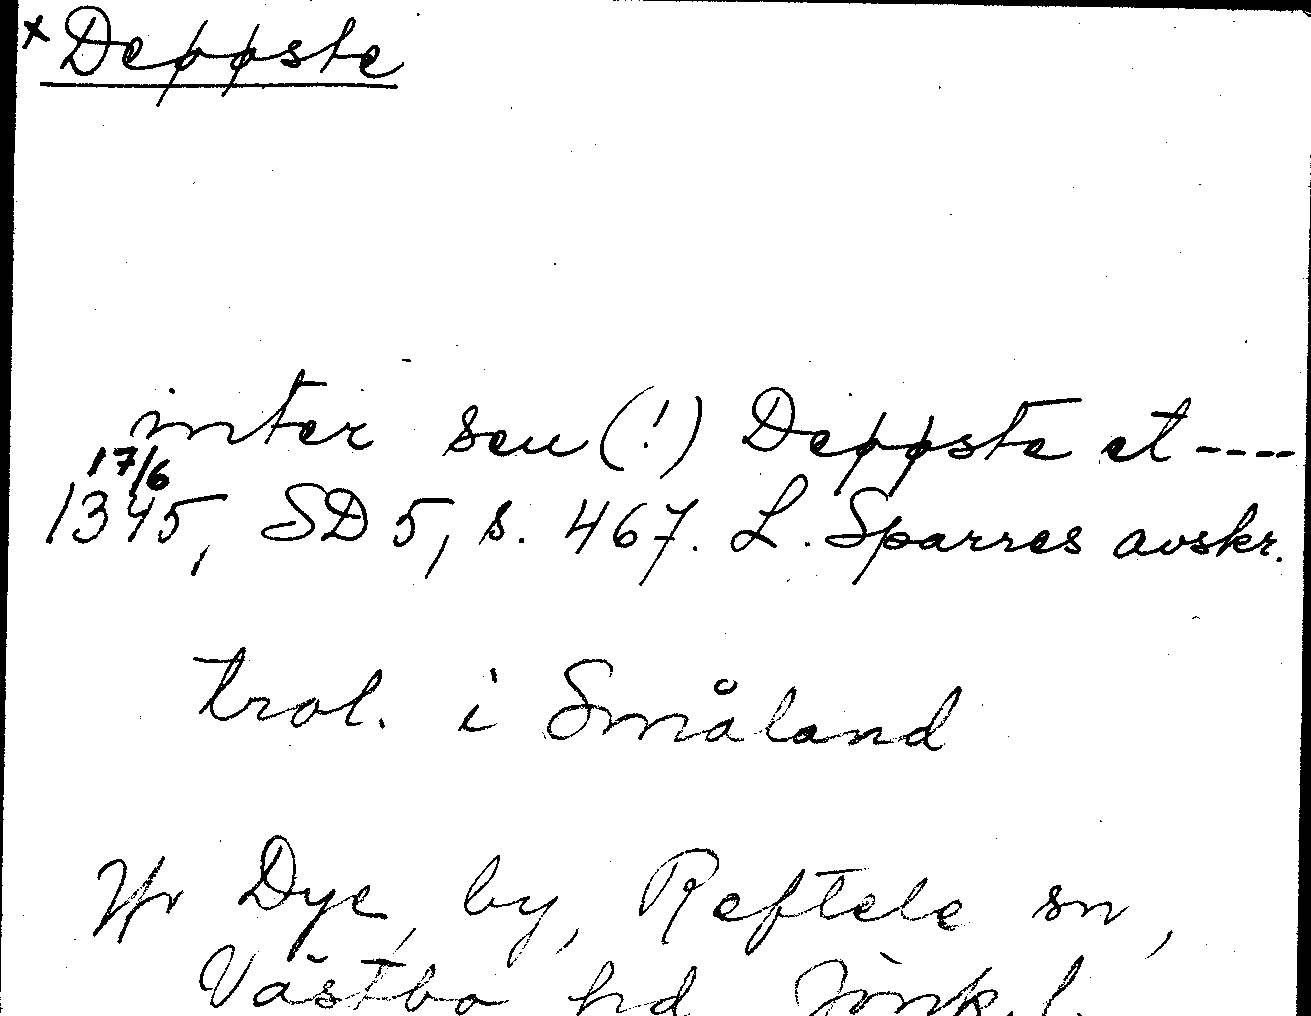 x Deppste
inter seu (!) Deppste et ----
17/6
1345, SD 5, s. 467. L. Sparres avskr.
trol. i Småland
Jfr Dye, by, Reftele sn,
Västbo hd Jönk. l.